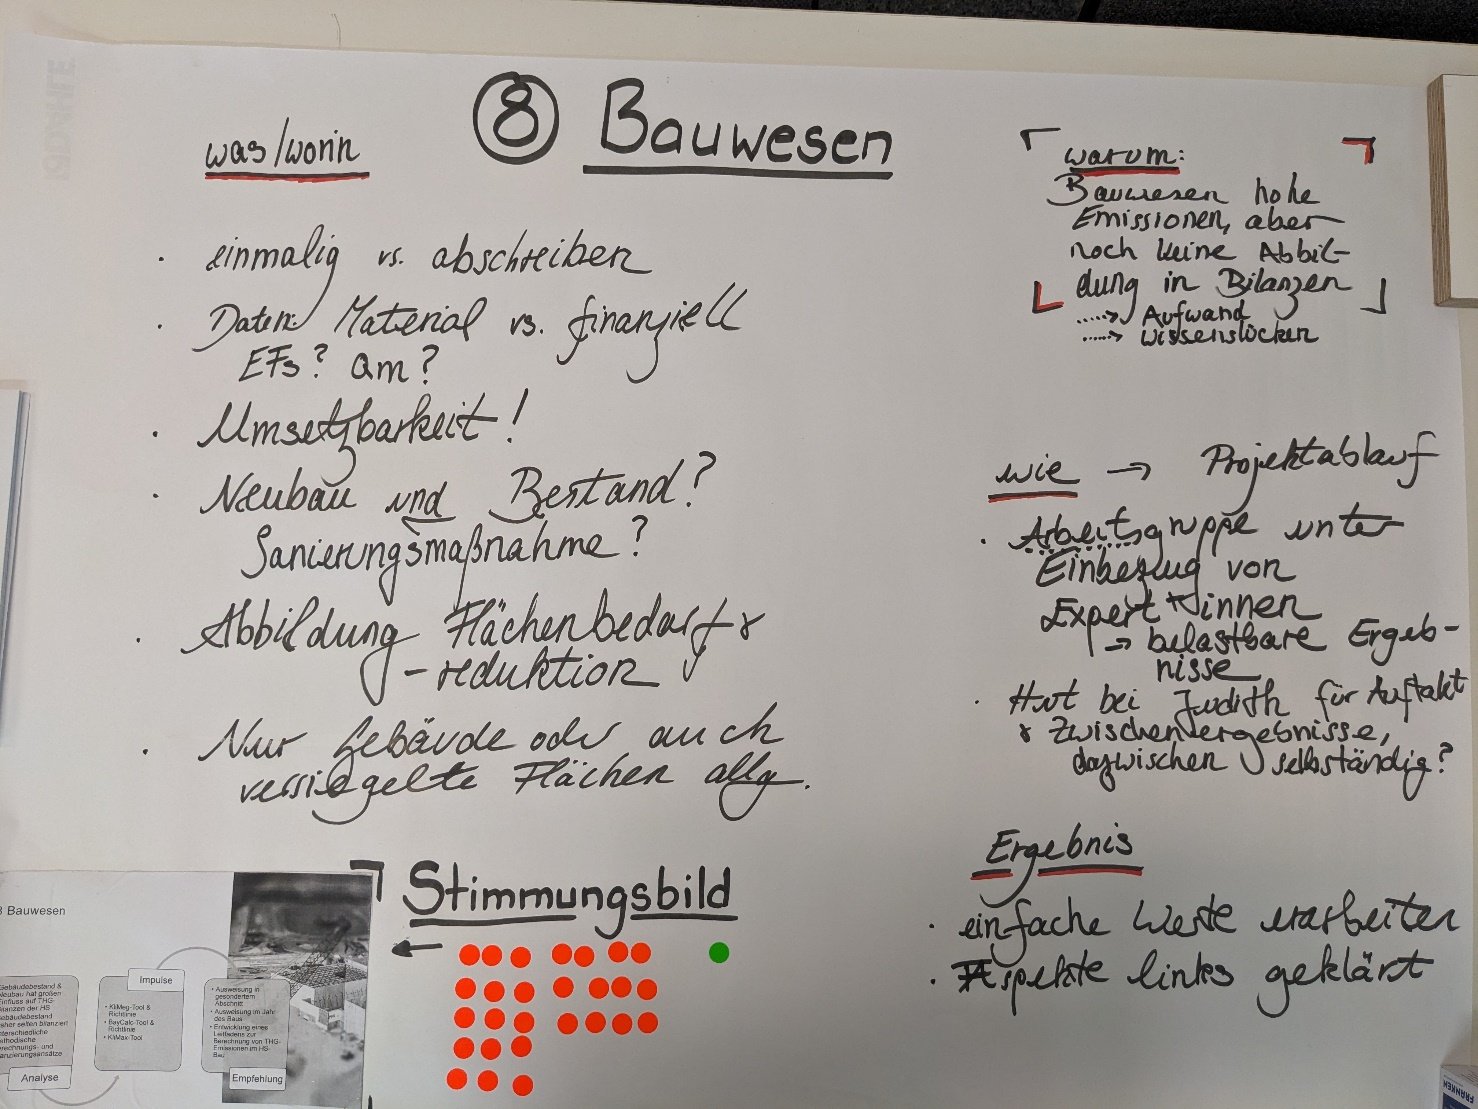 ⑧ Bauwesen
was/worin
· einmalig vs. abschreiben
· Daten: Material vs. finanziell
EFs? Qm?
· Umsetzbarkeit!
· Neubau und Bestand?
Sanierungsmaßnahme?
· Abbildung Flächenbedarf &
-reduktion
· Nur Gebäude oder auch
versiegelte Flächen allg.
warum:
Bauwesen hohe
Emissionen, aber
noch keine Abbil-
dung in Bilanzen
→ Aufwand
→ Wissenslücken
wie → Projektablauf
· Arbeitsgruppe unter
Einbezug von
Expert*innen
→ belastbare Ergeb-
nisse
· Hut bei Judith für Auftakt
& Zwischenergebnisse,
dazwischen selbständig?
Ergebnis
· einfache Werte erarbeiten
· Aspekte links geklärt
Stimmungsbild
←
Bauwesen
Gebäudebestand &
Neubau hat großen
Einfluss auf THG-
Bilanzen der HS
Gebäudebestand
selten bilanziert
und
Analyse
Impulse
• KliMeg-Tool &
Richtlinie
• BayCalc-Tool &
Richtlinie
• KliMax-Tool
• Ausweisung in
gesondertem
Abschnitt
• Ausweisung im Jahr
des Baus
• Entwicklung eines
Leitfadens zur
Berechnung von THG-
Emissionen im HS-
Bau
Empfehlung
DAHLE
FRANKEN